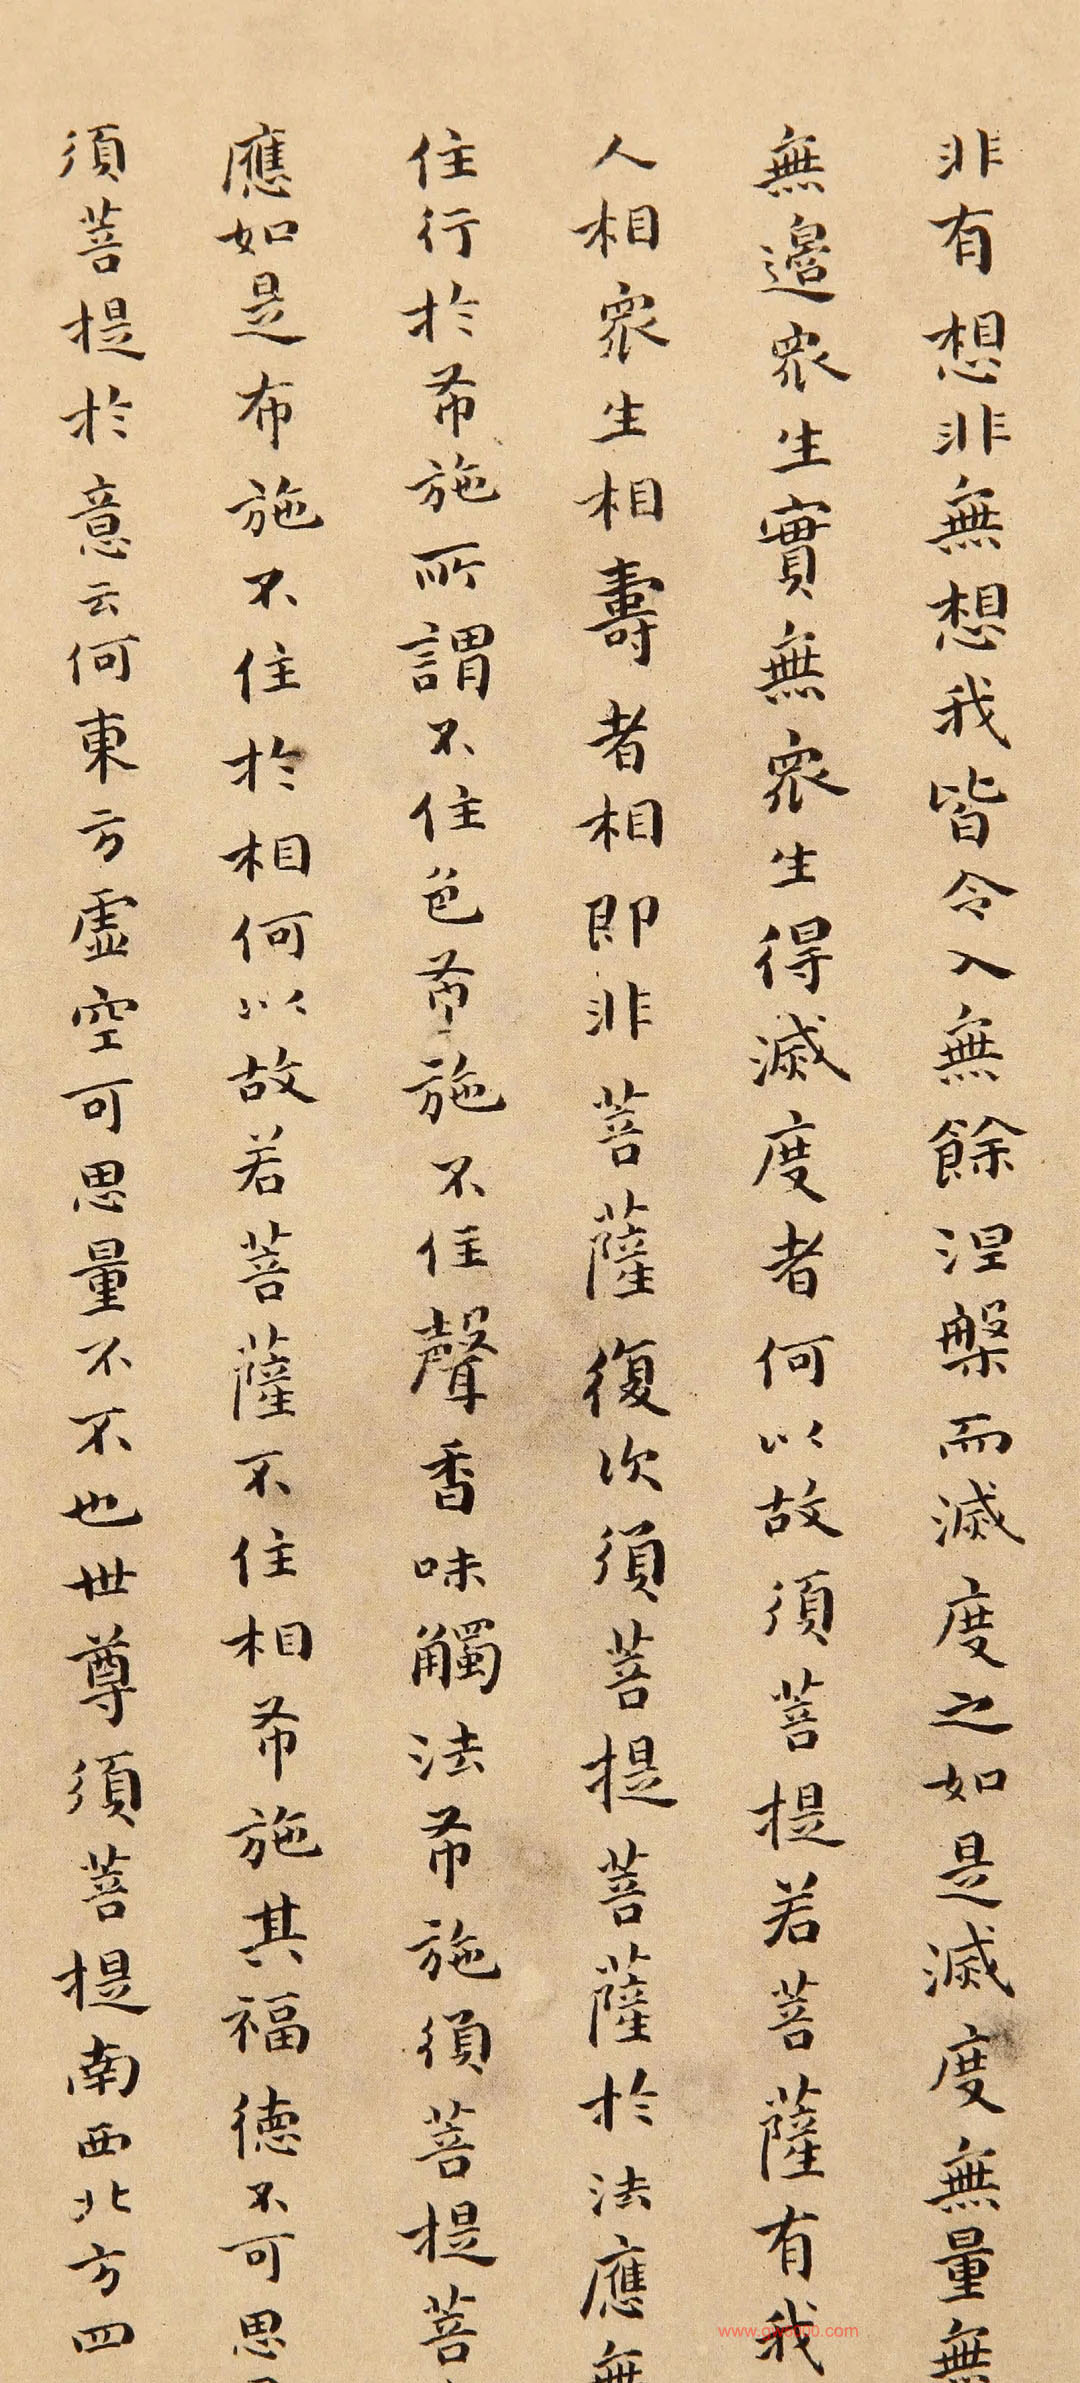 非有想非無想我皆令入無餘涅槃而滅度之如是滅度無量無
無邊衆生實無衆生得滅度者何以故須菩提若菩薩有我
人相衆生相壽者相即非菩薩復次須菩提菩薩於法應無
住行於布施所謂不住色布施不住聲香味觸法布施須菩提菩
應如是布施不住於相何以故若菩薩不住相布施其福德不可思
須菩提於意云何東方虛空可思量不不也世尊須菩提南西北方四